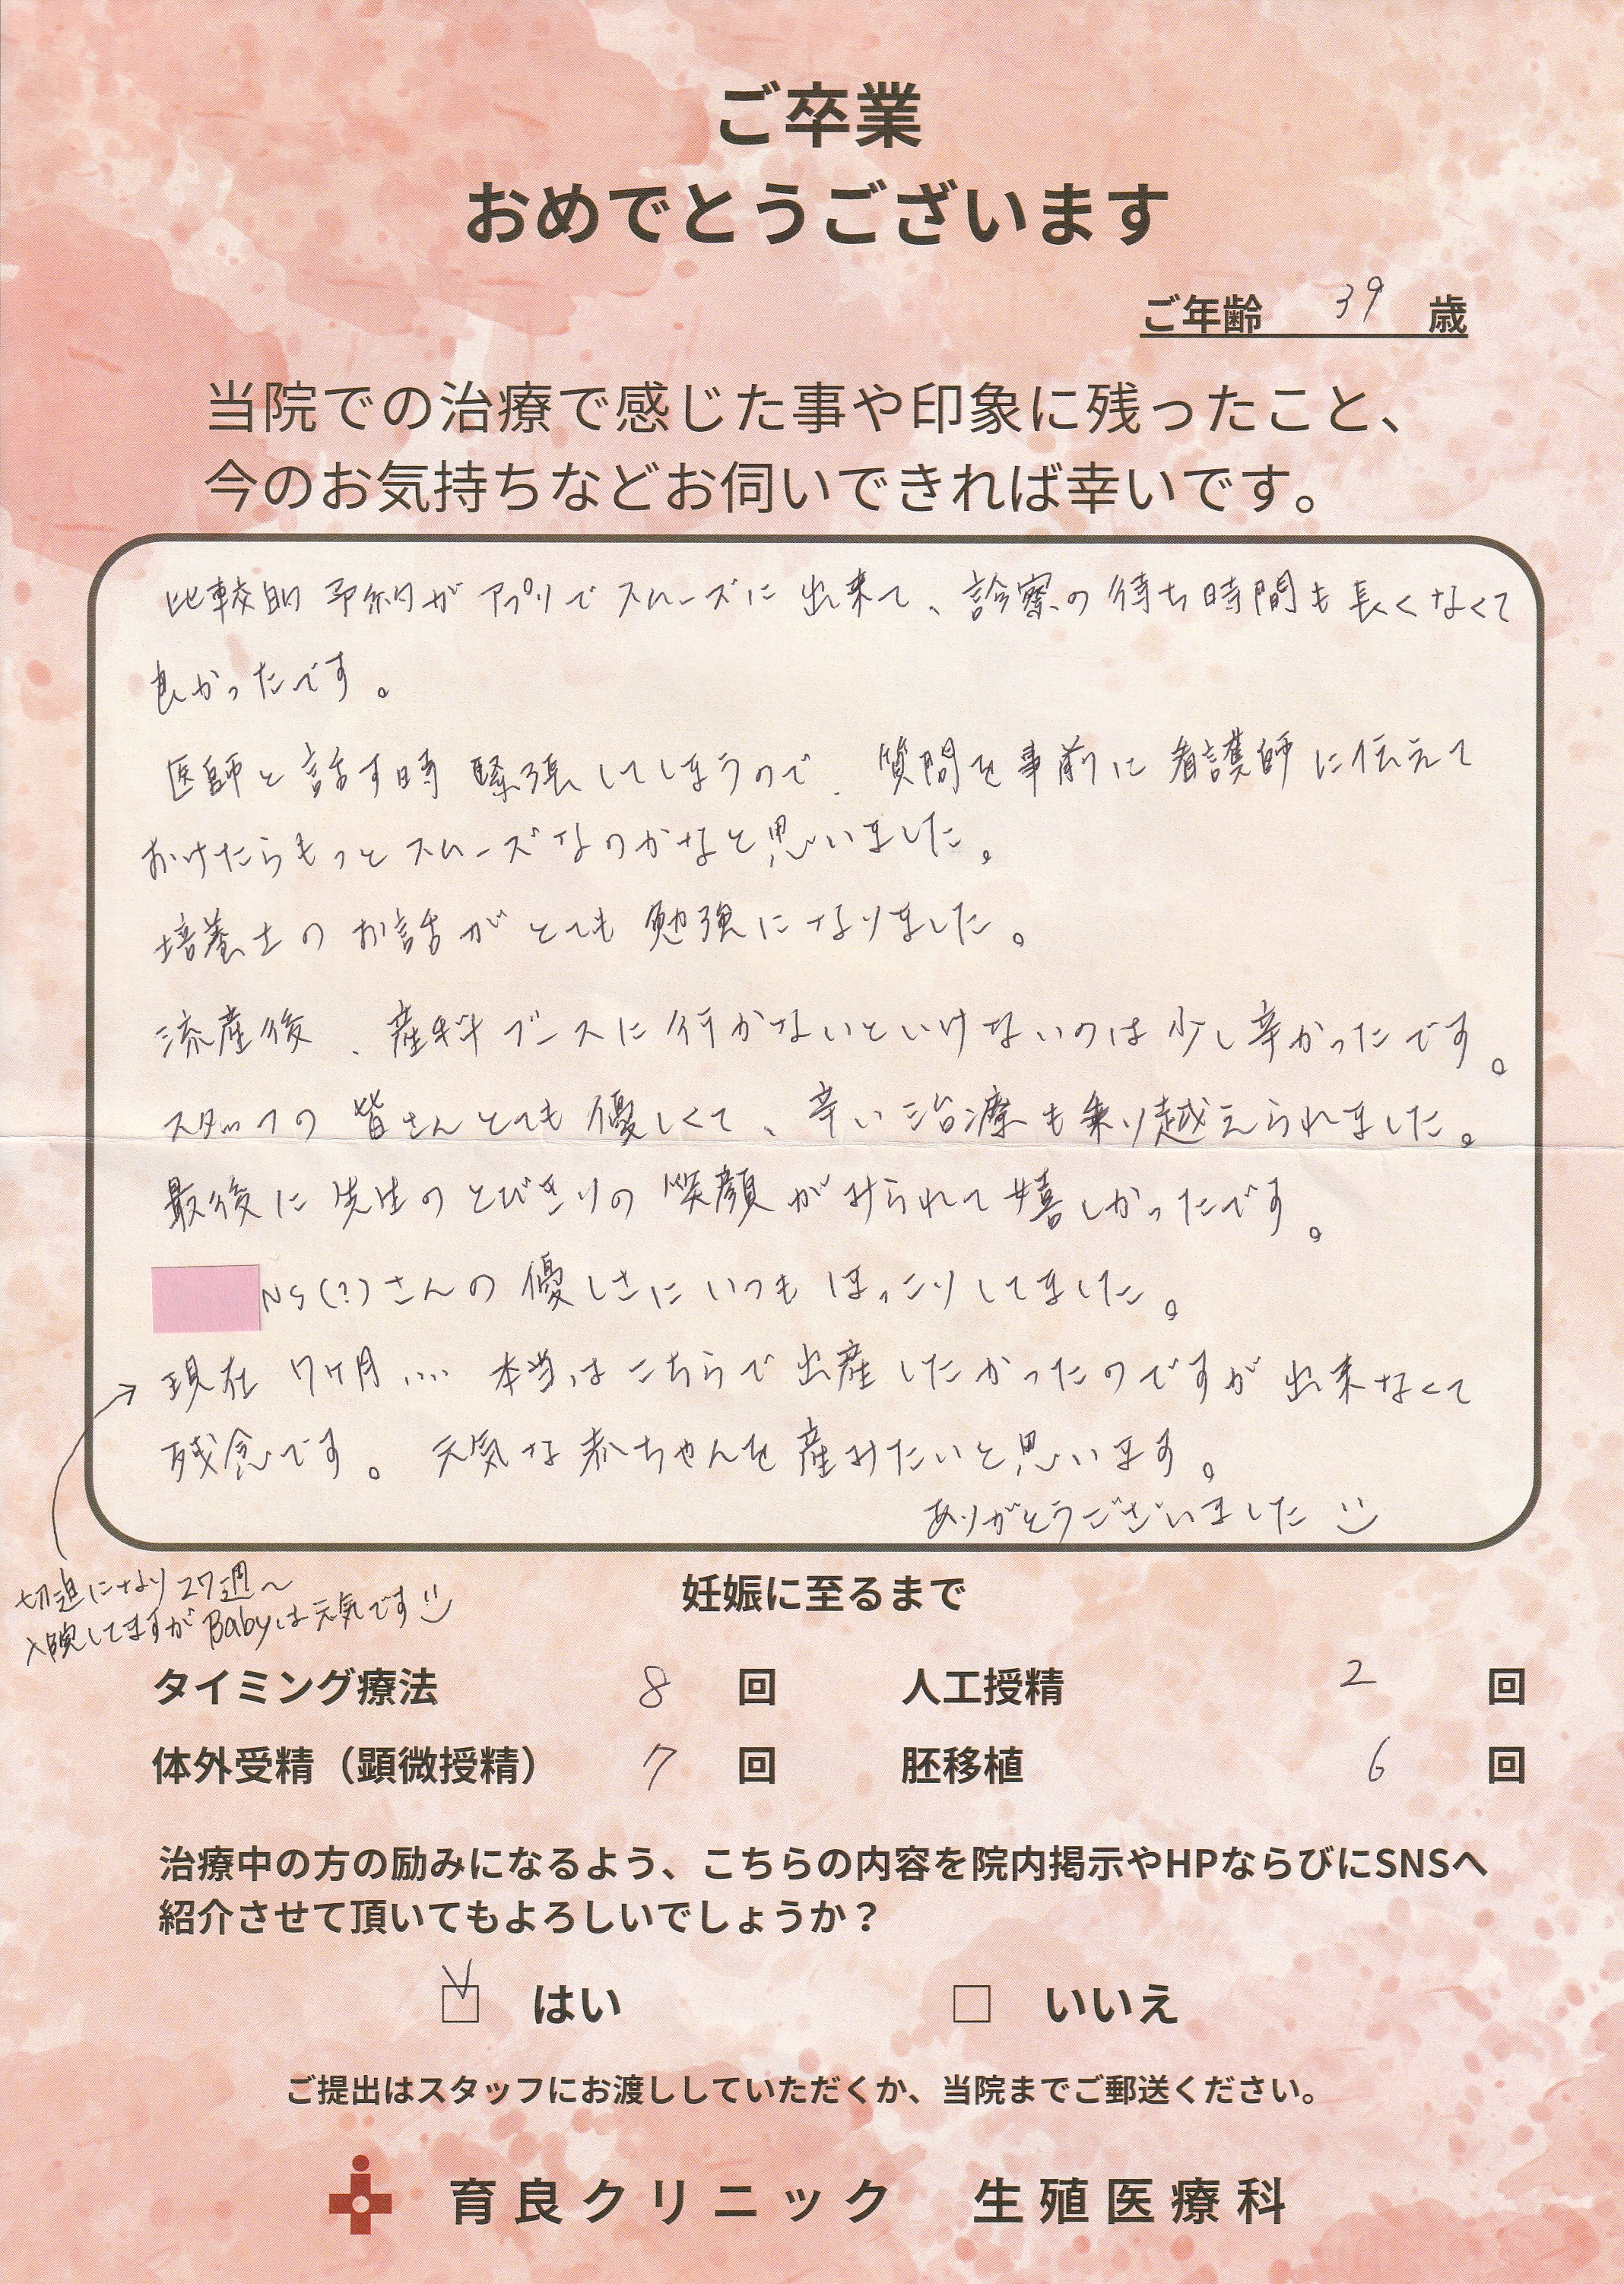 ご卒業
おめでとうございます
ご年齢 39 歳
当院での治療で感じた事や印象に残ったこと、
今のお気持ちなどお伺いできれば幸いです。
比較的 予約が アプリで スムーズに 出来て、診察の 待ち時間も 長くなくて
良かったです。
医師と話す時 緊張してしまうので、質問を事前に 看護師に伝えて
おけたらもっと スムーズなのかなと思いました。
培養士の お話が とても 勉強に なりました。
流産後、産科ブースに行かないといけないのは 少し辛かったです。
スタッフの 皆さんとても 優しくて、辛い治療も乗り越えられました。
最後に 先生の とびきりの 笑顔が みられて 嬉しかったです。
NS(?)さんの 優しさに いつも ほっこりしてました。
現在 7ヶ月… 本当は こちらで 出産したかったのですが 出来なくて
残念です。 元気な 赤ちゃんを 産みたいと思います。
ありがとうございました
切迫になり 27週〜
入院してますが Babyは元気です
妊娠に至るまで
タイミング療法 8 回 人工授精 2 回
体外受精（顕微授精） 7 回 胚移植 6 回
治療中の方の励みになるよう、こちらの内容を院内掲示やHPならびにSNSへ
紹介させて頂いてもよろしいでしょうか？
☑ はい □ いいえ
ご提出はスタッフにお渡ししていただくか、当院までご郵送ください。
育良クリニック 生殖医療科